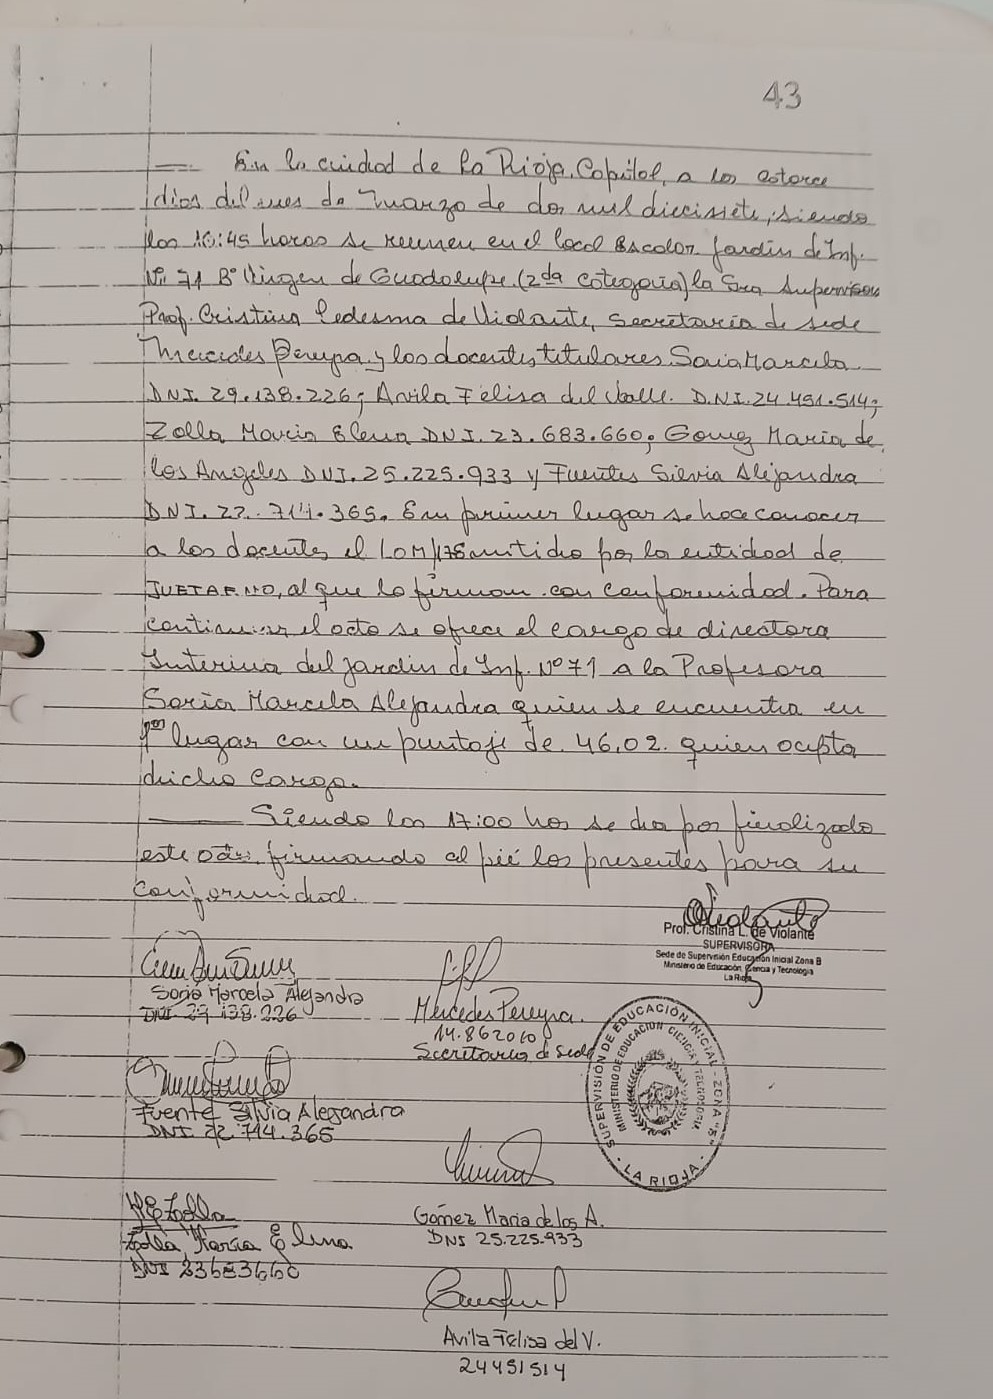 43
En la ciudad de La Rioja, Capital, a los catorce
días del mes de Marzo de dos mil diecisiete, siendo
los 16:45 horas se reunen en el local Escolar Jardín de Inf.
Nº 71 Bº Virgen de Guadalupe (2da categoría) la Sra Supervisora
Prof. Cristina Ledesma de Violante, Secretaria de sede
Mercedes Pereyra y los docentes titulares Soria Marcela
DNI. 29.138.226; Avila Felisa del Valle. D.N.I. 24.451.514;
Zolla Maria Elena DNI. 23.683.660; Gomez Maria de
los Angeles DNI. 25.225.933 y Fuentes Silvia Alejandra
DNI. 22.714.365. En primer lugar se hace conocer
a los docentes el emitido por la entidad de
al que lo firman con conformidad. Para
continuar el acto se ofrece el cargo de directora
Interina del Jardin de Inf. Nº 71 a la Profesora
Soria Marcela Alejandra quien se encuentra en
1er lugar con un puntaje de 46,02 quien acepta
dicho cargo.
Siendo las 17:00 hos se da por finalizado
este acto, firmando al pié los presentes para su
conformidad.
Violante
Prof. Cristina L. de Violante
SUPERVISORA
Sede de Supervisión Educación Inicial Zona B
Ministerio de Educación, Ciencia y Tecnología
La Rioja
Soria Marcela Alejandra
DNI 29 138.226
Mercedes Pereyra.
14.862010
Secretaria de Sede
SUPERVISIÓN DE EDUCACIÓN INICIAL - ZONA "B"
MINISTERIO DE EDUCACIÓN CIENCIA Y TECNOLOGIA
- LA RIOJA -
Fuente Silvia Alejandra
DNI 22 714.365
Gómez Maria de los A.
DNI 25.225.933
ME Zolla
Zolla María Elena
DNI 23683660
Avila Felisa del V.
24451514